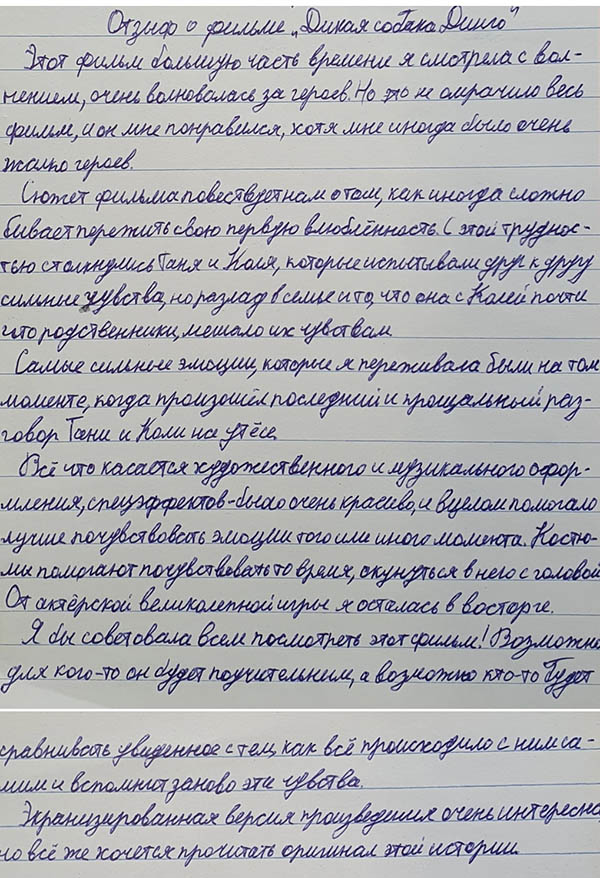 Отзыф о фильме „Дикая собака Динго"
Этот фильм большую часть времени я смотрела с вол-
нением, очень волновалась за героев. Но это не омрачило весь
фильм, и он мне понравился, хотя мне иногда было очень
жалко героев.
Сюжет фильма повествует нам о том, как иногда сложно
бывает пережить свою первую влюблённость. С этой труднос-
тью столкнулись Таня и Коля, которые испытывали друг к другу
сильные чувства, но разлад в семье и то, что она с Колей почти
что родственники, мешало их чувствам
Самые сильные эмоции, которые я переживала были на том
моменте, когда произошёл последний и прощальный раз-
говор Тани и Коли на утёсе.
Всё что касается художественного и музыкального офор-
мления, спецэффектов-было очень красиво, и в целом помогало
лучше почувствовать эмоции того или иного момента. Костю-
мы помогают почувствовать то время, окунуться в него с головой
От актёрской великолепной игры я осталась в восторге.
Я бы советовала всем посмотреть этот фильм! Возможно
для кого-то он будет поучительным, а возможно кто-то будет
сравнивать увиденное с тем, как всё происходило с ним са-
мим и вспомнит заново эти чувства.
Экранизированная версия произведения очень интересна,
но всё же хочется прочитать оригинал этой истории.